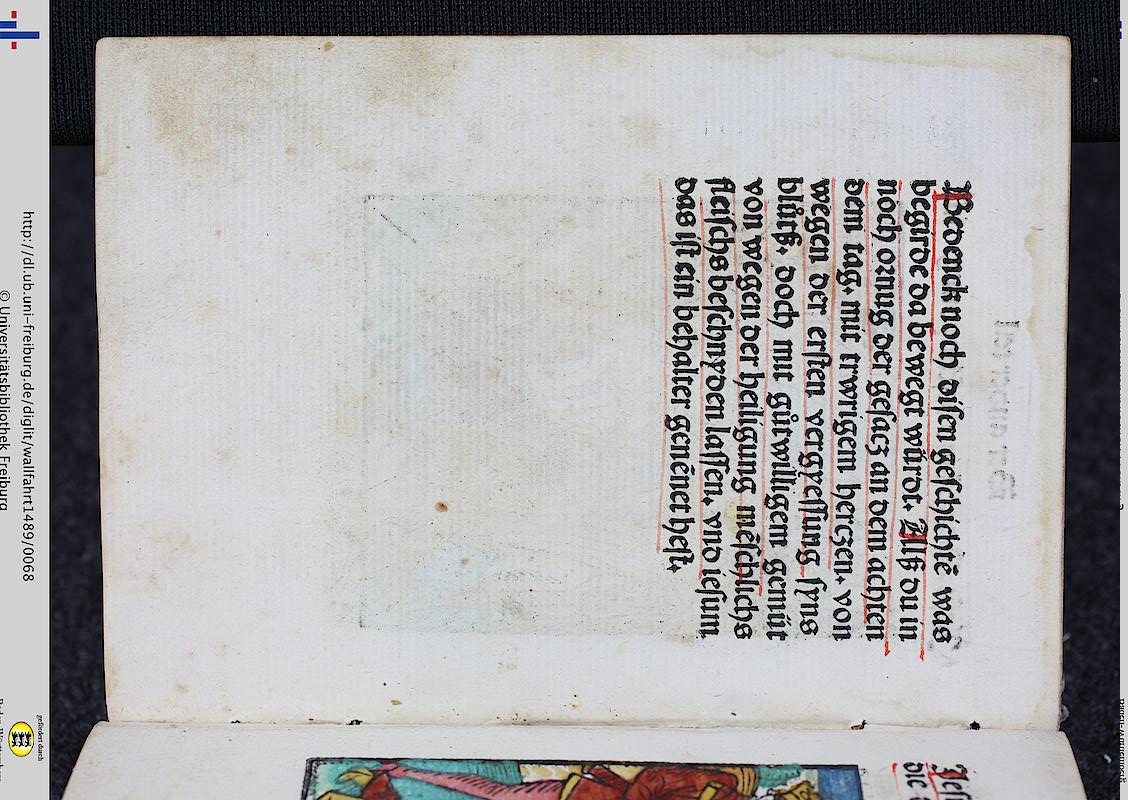 Bedenck noch disen geschichtē was
begirde da bewegt würdt. Allß du in
noch ornug der gesacz an dem achten
dem tag. mit trwrigem herczen. von
wegen der ersten vergyessung syns
blůtß. doch mit gůtwilligem gemüt
von wegen der heiligung mēschlichs
fleischs beschnyden lassen. vnd iesum
das ist ein behalter genēnet hest.
http://dl.ub.uni-freiburg.de/diglit/wallfahrt1489/0068
© Universitätsbibliothek Freiburg
gefördert durch